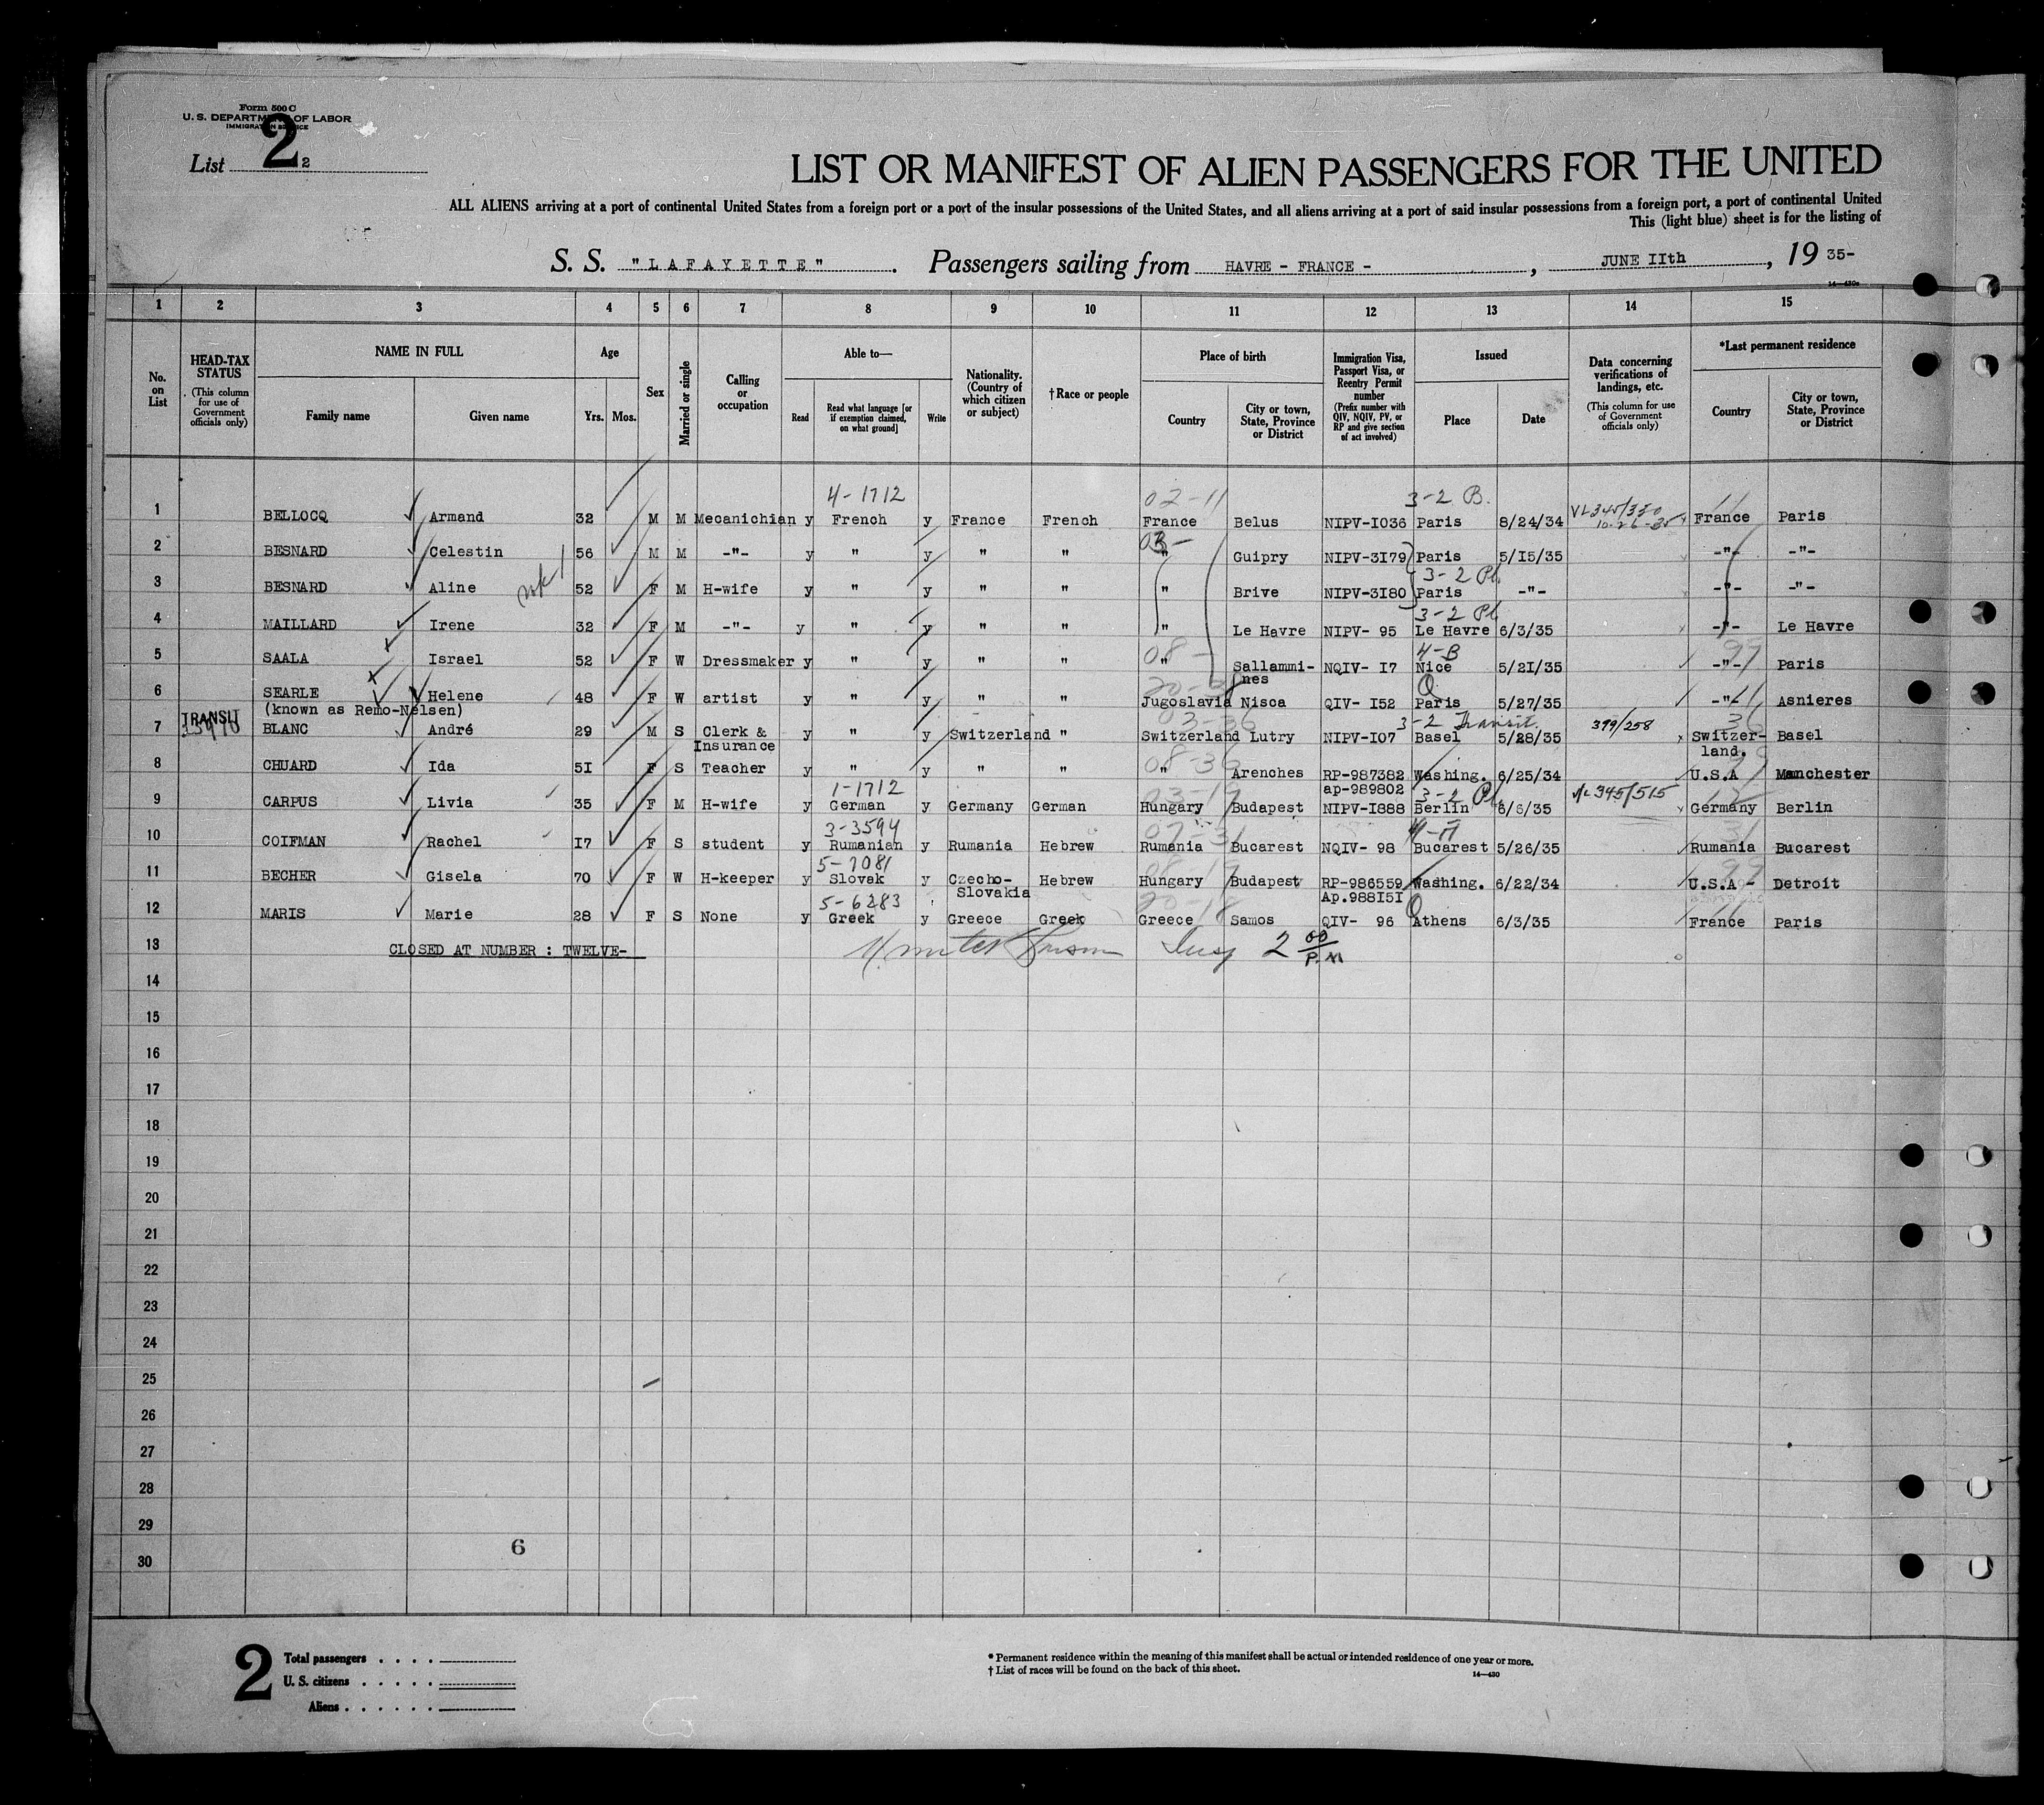 Form 500 C
U. S. DEPARTMENT OF LABOR
IMMIGRATION SERVICE
List 2 2
LIST OR MANIFEST OF ALIEN PASSENGERS FOR THE UNITED
ALL ALIENS arriving at a port of continental United States from a foreign port or a port of the insular possessions of the United States, and all aliens arriving at a port of said insular possessions from a foreign port, a port of continental United
This (light blue) sheet is for the listing of
S. S. "LAFAYETTE". Passengers sailing from HAVRE - FRANCE - , JUNE IIth , 19 35-
14—430c
1 2 3 4 5 6 7 8 9 10 11 12 13 14 15
No. on List
HEAD-TAX STATUS (This column for use of Government officials only)
NAME IN FULL Family name Given name
Age Yrs. Mos.
Sex
Married or single
Calling or occupation
Able to— Read Read what language [or if exemption claimed, on what ground] Write
Nationality. (Country of which citizen or subject)
†Race or people
Place of birth Country City or town, State, Province or District
Immigration Visa, Passport Visa, or Reentry Permit number (Prefix number with QIV, NQIV, PV, or RP and give section of act involved)
Issued Place Date
Data concerning verifications of landings, etc. (This column for use of Government officials only)
*Last permanent residence Country City or town, State, Province or District
4-1712 02-11 3-2 B. 11
1 BELLOCQ Armand 32 M M Mecanichian y French y France French France Belus NIPV-I036 Paris 8/24/34 France Paris
03-
2 BESNARD Celestin 56 M M -"- y " y " " " Guipry NIPV-3I79 Paris 5/I5/35 -"- -"-
3-2 Pl.
3 BESNARD Aline 52 F M H-wife y " y " " " Brive NIPV-3I80 Paris -"- -"- -"-
3-2 Pl.
4 MAILLARD Irene 32 F M -"- y " y " " " Le Havre NIPV- 95 Le Havre 6/3/35 -"- Le Havre
08- 4-B 97
5 SAALA Israel 52 F W Dressmaker y " y " " " Sallammi-nes NQIV- I7 Nice 5/2I/35 -"- Paris
Q
6 SEARLE Helene 48 F W artist y " y " " Jugoslavia Nisca QIV- I52 Paris 5/27/35 -"- 11 Asnieres
(known as Remo-Nelsen)
TRANSIT
03-36 3-2 Transit. 399/258 36
7 BLANC André 29 M S Clerk & Insurance y " y Switzerland " Switzerland Lutry NIPV-I07 Basel 5/28/35 Switzer-land. Basel
08-36
8 CHUARD Ida 5I F S Teacher y " y " " " Arenches RP-987382 Washing. 6/25/34 U.S.A Manchester
ap-989802
1-1712 03-19 3-2 Pl. 345/515
9 CARPUS Livia 35 F M H-wife y German y Germany German Hungary Budapest NIPV-I888 Berlin 6/6/35 Germany Berlin
3-3594 07-31 31
10 COIFMAN Rachel I7 F S student y Rumanian y Rumania Hebrew Rumania Bucarest NQIV- 98 Bucarest 5/26/35 Rumania Bucarest
5-7081 08-19 99
11 BECHER Gisela 70 F W H-keeper y Slovak y Czecho-Slovakia Hebrew Hungary Budapest RP-986559 Washing. 6/22/34 U.S.A - Detroit
Ap.988I5I
5-6283 20-18 Q 11
12 MARIS Marie 28 F S None y Greek y Greece Greek Greece Samos QIV- 96 Athens 6/3/35 France Paris
13 CLOSED AT NUMBER : TWELVE- Insp 2 00 P.M
14
15
16
17
18
19
20
21
22
23
24
25
26
27
28
29
30
6
2
Total passengers . . . .
U. S. citizens . . . . .
Aliens . . . . . .
* Permanent residence within the meaning of this manifest shall be actual or intended residence of one year or more.
† List of races will be found on the back of this sheet.
14—430